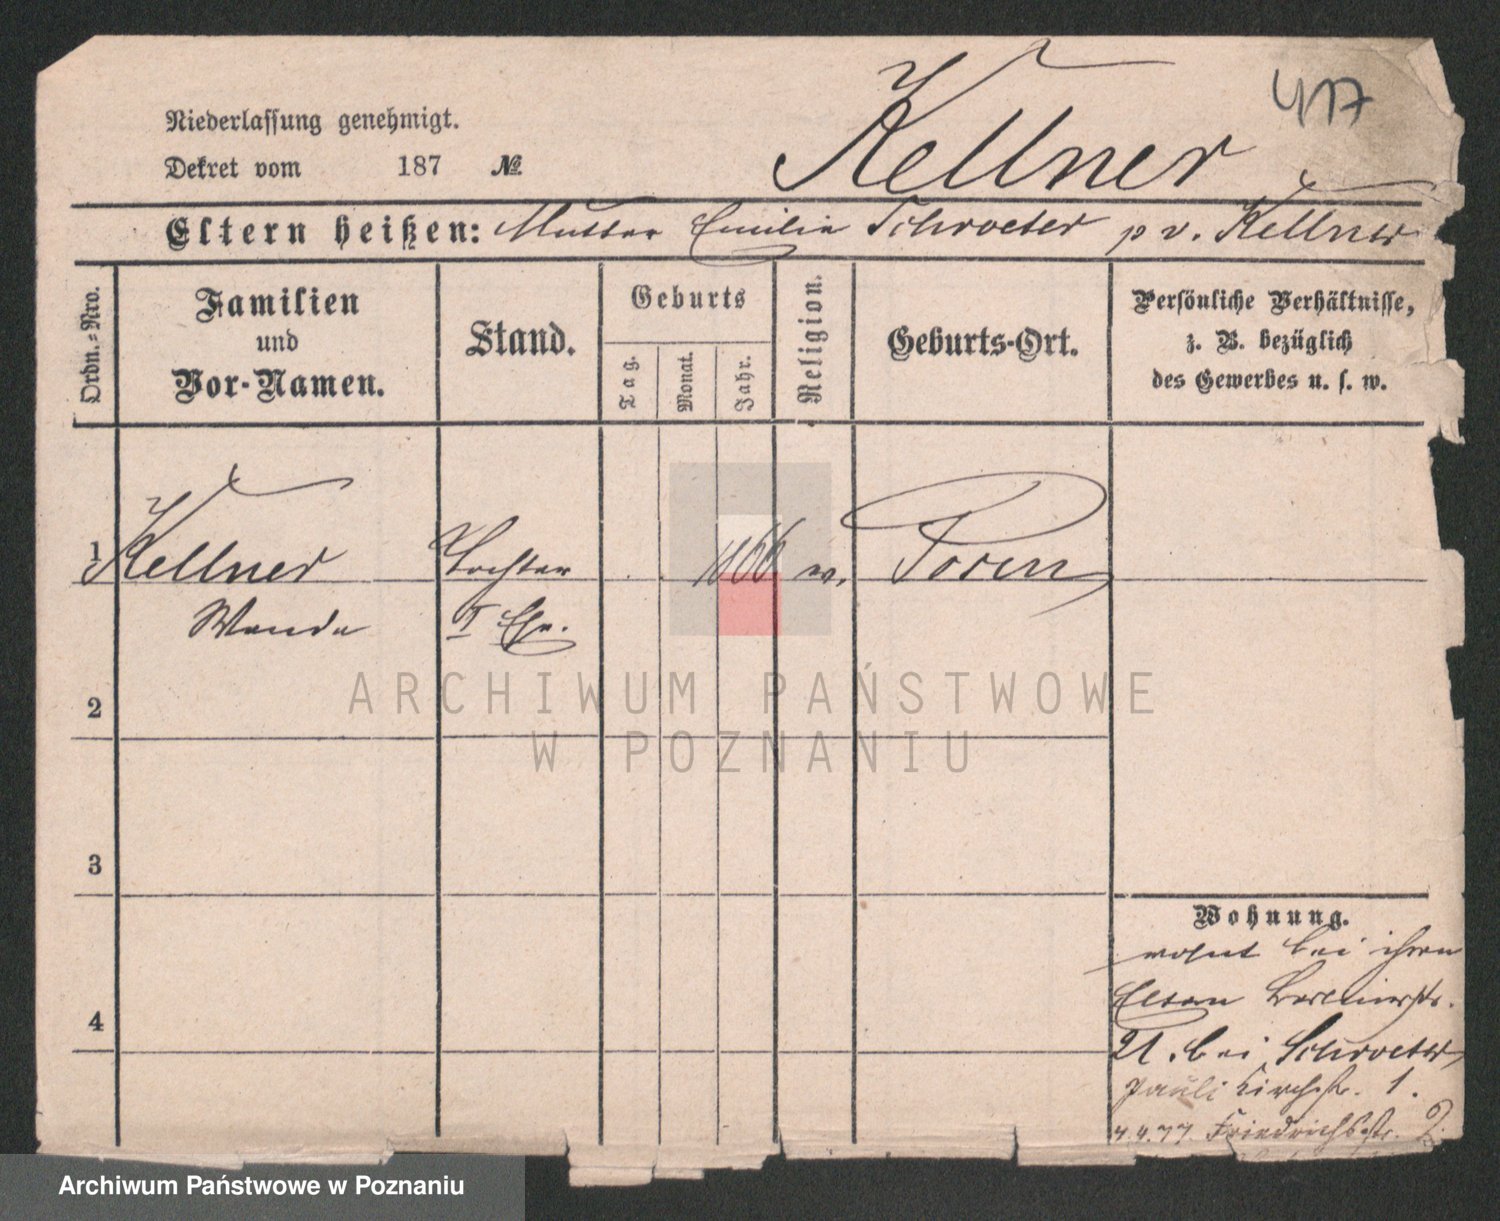 417
Kellner
Niederlassung genehmigt.
Dekret vom 187 №
Eltern heißen: Mutter Emilie Schroeter p v. Kellner
Ordn.-Nro.
Familien
und
Vor-Namen.
Stand.
Geburts
Tag.
Monat.
Jahr.
Religion.
Geburts-Ort.
Persönliche Verhältnisse,
z. B. bezüglich
des Gewerbes u. s. w.
1 Kellner Tochter 1866 Posen
Wanda I Ehe.
2
3
4
Wohnung.
wohnt bei ihren
Eltern
21. bei Schroeter
Pauli Kirchstr. 1.
4.4.77 Friedrichsstr.
ARCHIWUM PAŃSTWOWE
W POZNANIU
Archiwum Państwowe w Poznaniu